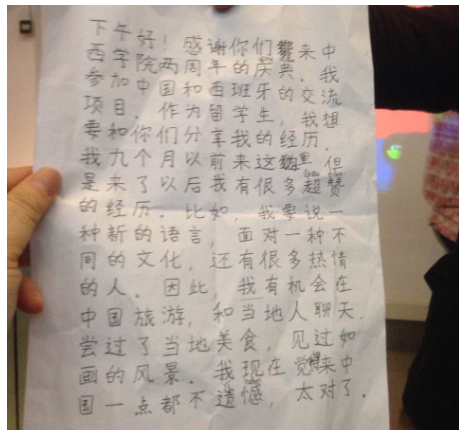 下午好！感谢你们能来中
西学院两周年的庆典．我
参加中国和西班牙的交流
项目．作为留学生，我想
要和你们分享我的经历．
我九个月以前来这里，但
是来了以后我有很多超赞
的经历．比如，我要说一
种新的语言，面对一种不
同的文化，还有很多热情
的人．因此，我有机会在
中国旅游，和当地人聊天．
尝过了当地美食，见过如
画的风景．我现在觉得来中
国一点都不遗憾，太对了．